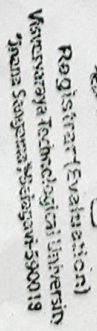 Registrar (Evaluation)
Visvesvaraya Technological University
"Jnana Sangama", Belagavi-590018